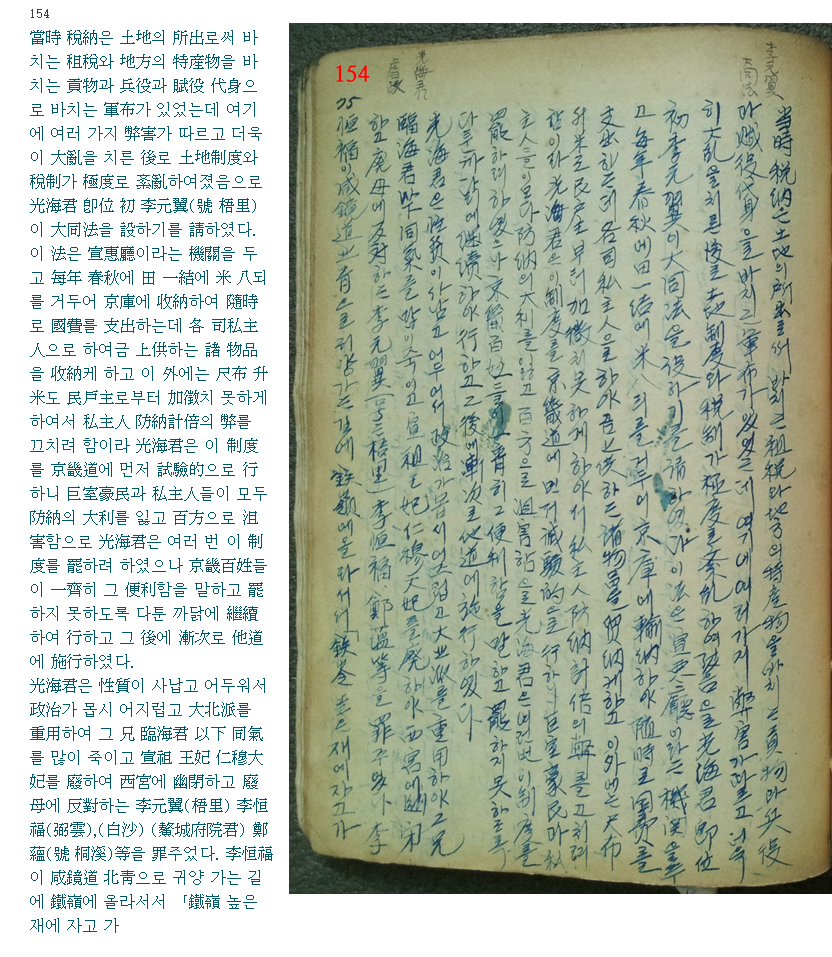 154
當時 稅納은 土地의 所出로써 바
치는 租稅와 地方의 特産物을 바
치는 貢物과 兵役과 賦役 代身으
로 바치는 軍布가 있었는데 여기
에 여러 가지 弊害가 따르고 더욱
이 大亂을 치른 後로 土地制度와
稅制가 極度로 紊亂하여졌음으로
光海君 卽位 初 李元翼(號 梧里)
이 大同法을 設하기를 請하였다.
이 法은 宣惠廳이라는 機關을 두
고 每年 春秋에 田 一結에 米 八되
를 거두어 京庫에 收納하여 隨時
로 國費를 支出하는데 各 司私主
人으로 하여금 上供하는 諸 物品
을 收納케 하고 이 外에는 尺布 升
米도 民戶主로부터 加徵치 못하게
하여서 私主人 防納計倍의 弊를
끄치려 함이라 光海君은 이 制度
를 京畿道에 먼저 試驗的으로 行
하니 巨室豪民과 私主人들이 모두
防納의 大利를 잃고 百方으로 沮
害함으로 光海君은 여러 번 이 制
度를 罷하려 하였으나 京畿百姓들
이 一齊히 그 便利함을 말하고 罷
하지 못하도록 다툰 까닭에 繼續
하여 行하고 그 後에 漸次로 他道
에 施行하였다.
光海君은 性質이 사납고 어두워서
政治가 몹시 어지럽고 大北派를
重用하여 그 兄 臨海君 以下 同氣
를 많이 죽이고 宣祖 王妃 仁穆大
妃를 廢하여 西宮에 幽閉하고 廢
母에 反對하는 李元翼(梧里) 李恒
福(弼雲),(白沙) (鰲城府院君) 鄭
蘊(號 桐溪)等을 罪주었다. 李恒福
이 咸鏡道 北靑으로 귀양 가는 길
에 鐵嶺에 올라서서 「鐵嶺 높은
재에 자고 가
154
李元翼
大同法
當時 稅納은 土地의 所出로써 바치는 租稅와 地方의 特産物을 바치는 貢物과 兵役
과 賦役代身을 바치는 軍布가 있었는데 여기에 여러가지 弊害가 따르고 더욱
히 大亂을 치른 後로 土地制度와 稅制가 極度로 紊亂하여졌음으로 光海君 即位
初 李元翼이 大同法을 設하기를 請하였다 이 法은 宣惠廳이라는 機関을 두
고 每年 春秋에 田 一結에 米八되를 거두어 京庫에 輸納하야 隨時로 国費를
支出하는데 各司私主人으로 하야금 上供하는 諸物品을 貿納케하고 이 外에는 尺布
升米도 民戶主부터 加徵치 못하게 하야서 私主人 防納計倍의 弊를 끄치려
함이라 光海君은 이 制度를 京畿道에 먼저 試驗的으로 行하니 巨室豪民과 私
主人들이 모다 防納의 大利를 잃고 百方으로 沮害함을 光海君은 여러번 이 制度를
罷하려 하였으나 京畿百姓들이 一齊히 그 便利함을 말하고 罷하지 못하도록
다투 까닭에 継續하야 行하고 그 後에 漸次로 他道에 施行하였다
光海君
虐政
光海君은 性質이 사납고 어두어서 政治가 몹시 어지럽고 大北派를 重用하야 그 兄
臨海君 以下 同氣를 많이 죽이고 宣祖 王妃 仁穆大妃를 廢하야 西宮에 幽閉
하고 廢母에 反対하는 李元翼(号는 梧里) 李恒福 鄭蘊等을 罪주었다 李
75
恒福이 咸鏡道 北青으로 귀양가는 길에 鉄嶺에 올라서서 「鉄嶺 높은 재에 자고 가